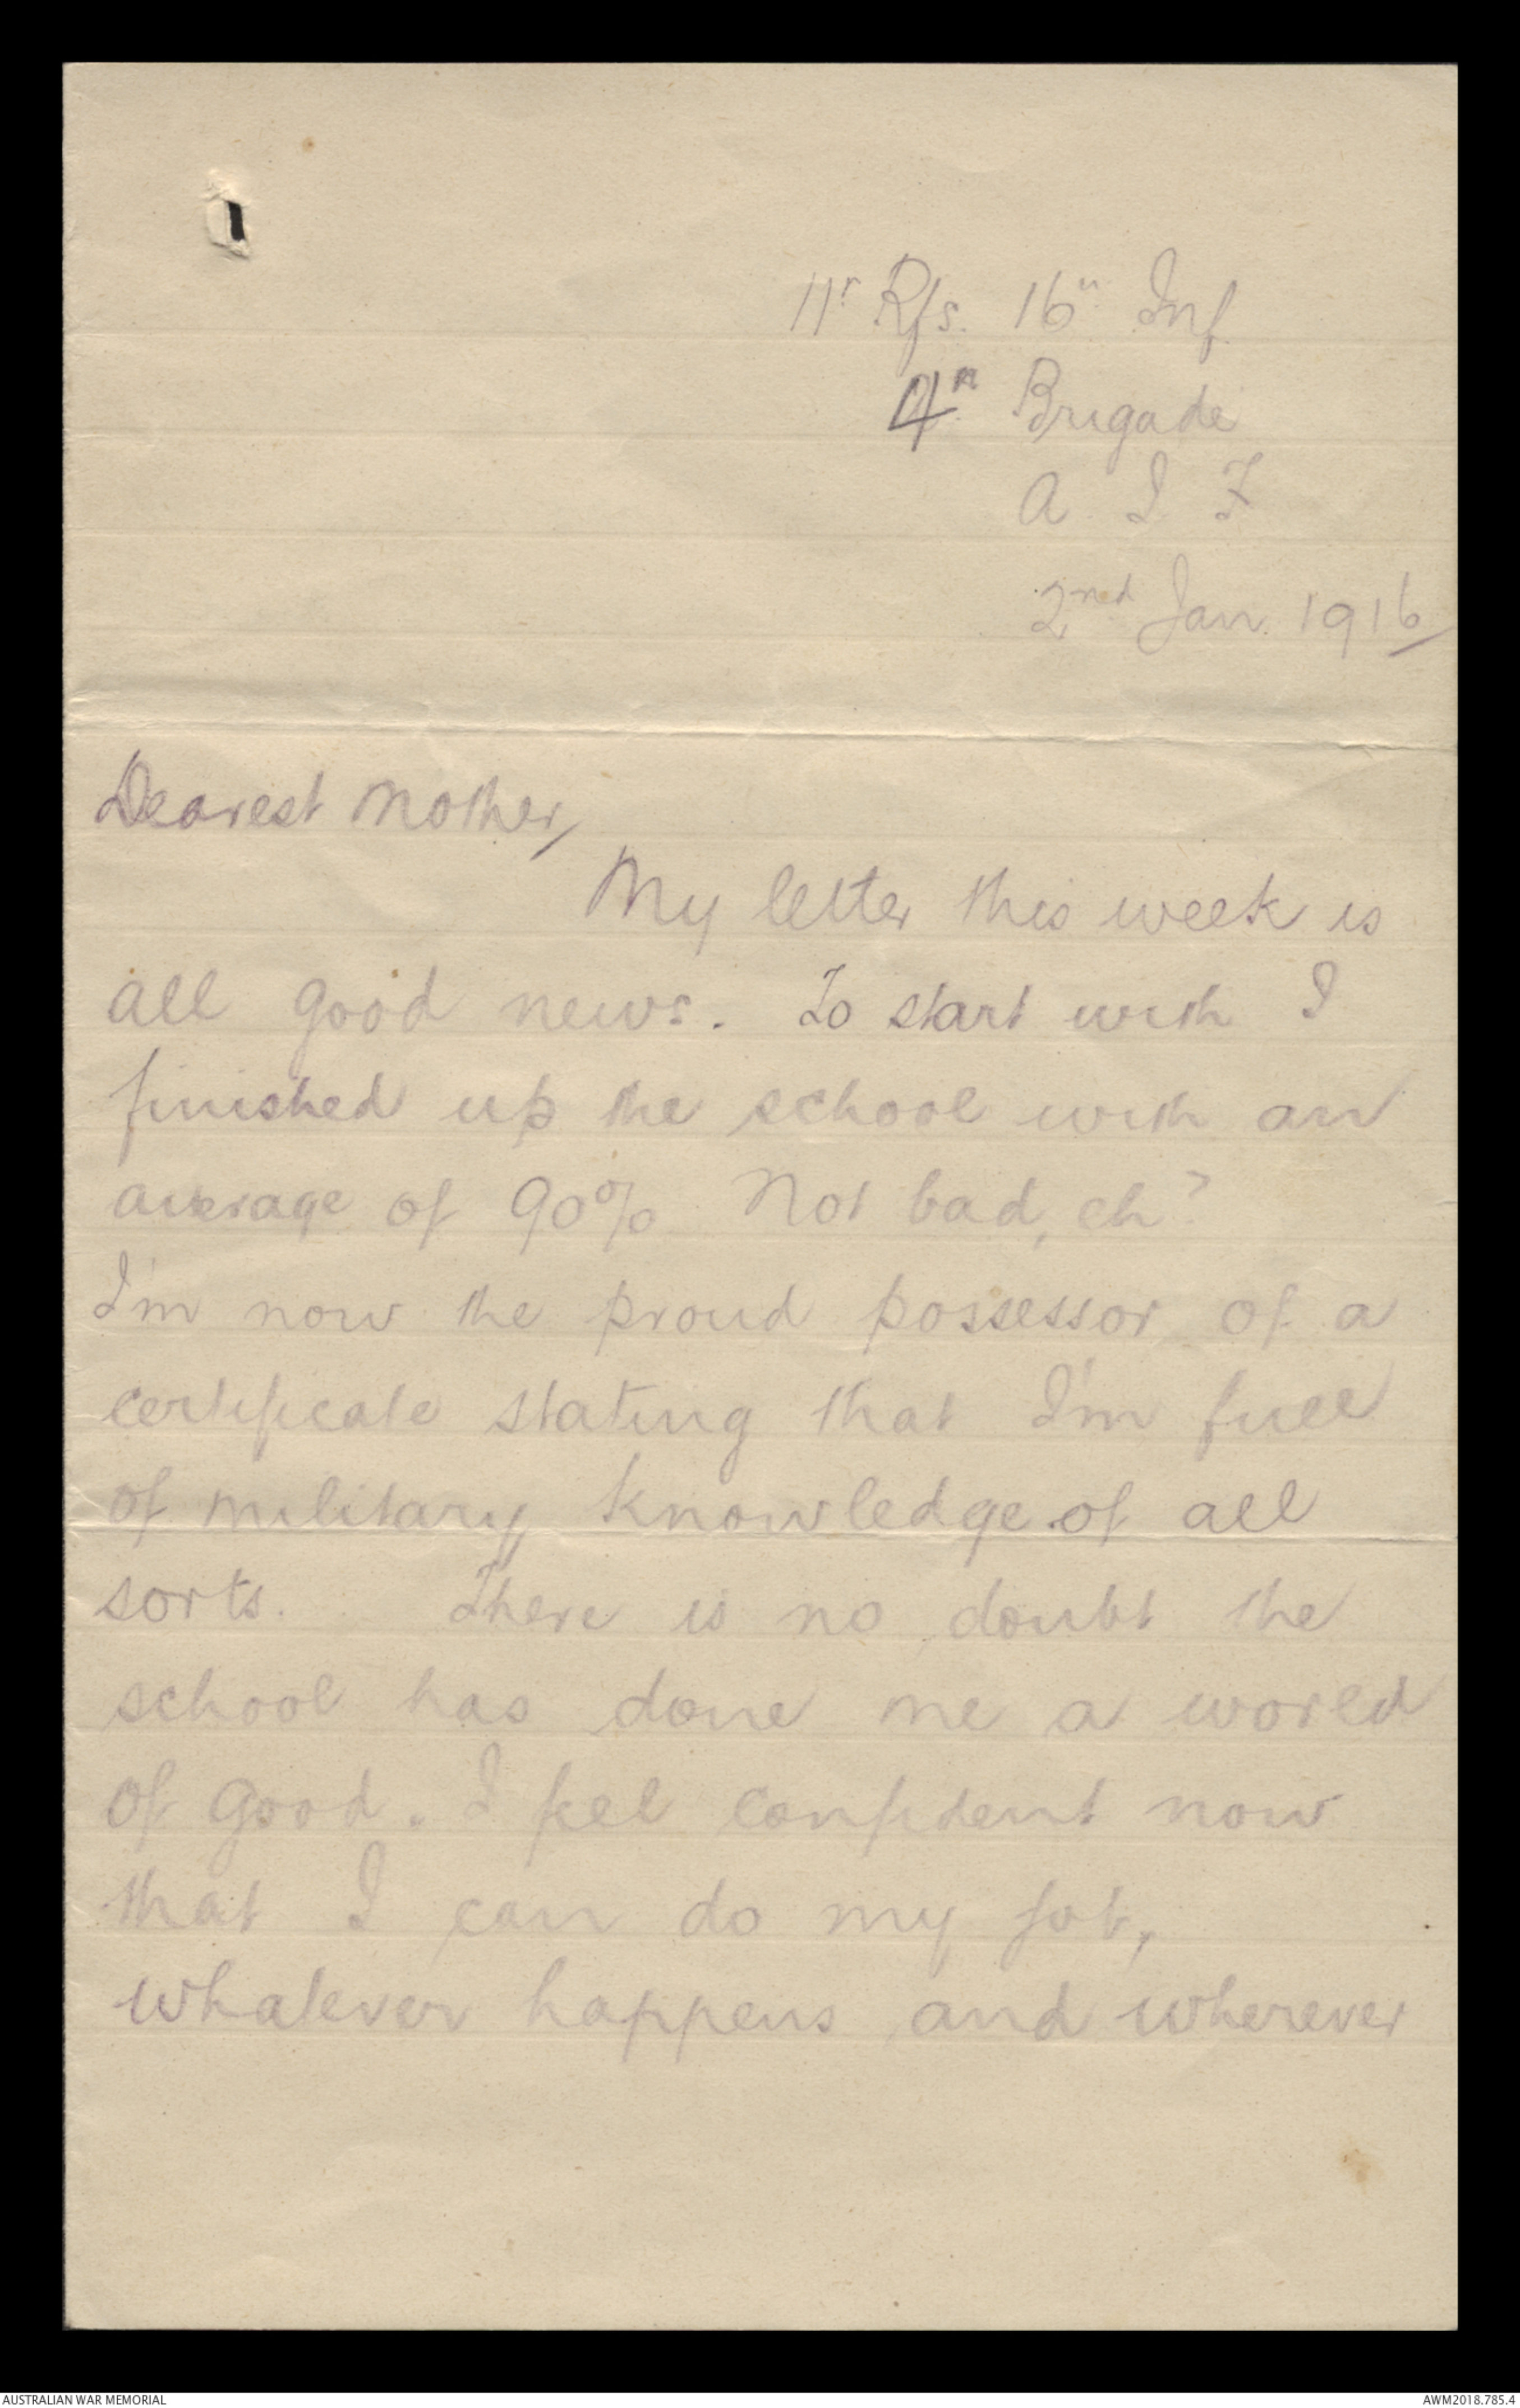 11th Rfs. 16th Inf
4th Brigade
A I F
2nd Jan. 1916
Dearest Mother,
My letter this week is
all good news. To start with I
finished up the school with an
average of 90% Not bad, eh?
I'm now the proud possessor of a
certificate stating that I'm full
of military knowledge of all
sorts. There is no doubt the
school has done me a world
of good. I feel confident now
that I can do my job,
whatever happens and wherever
AUSTRALIAN WAR MEMORIAL
AWM2018.785.4